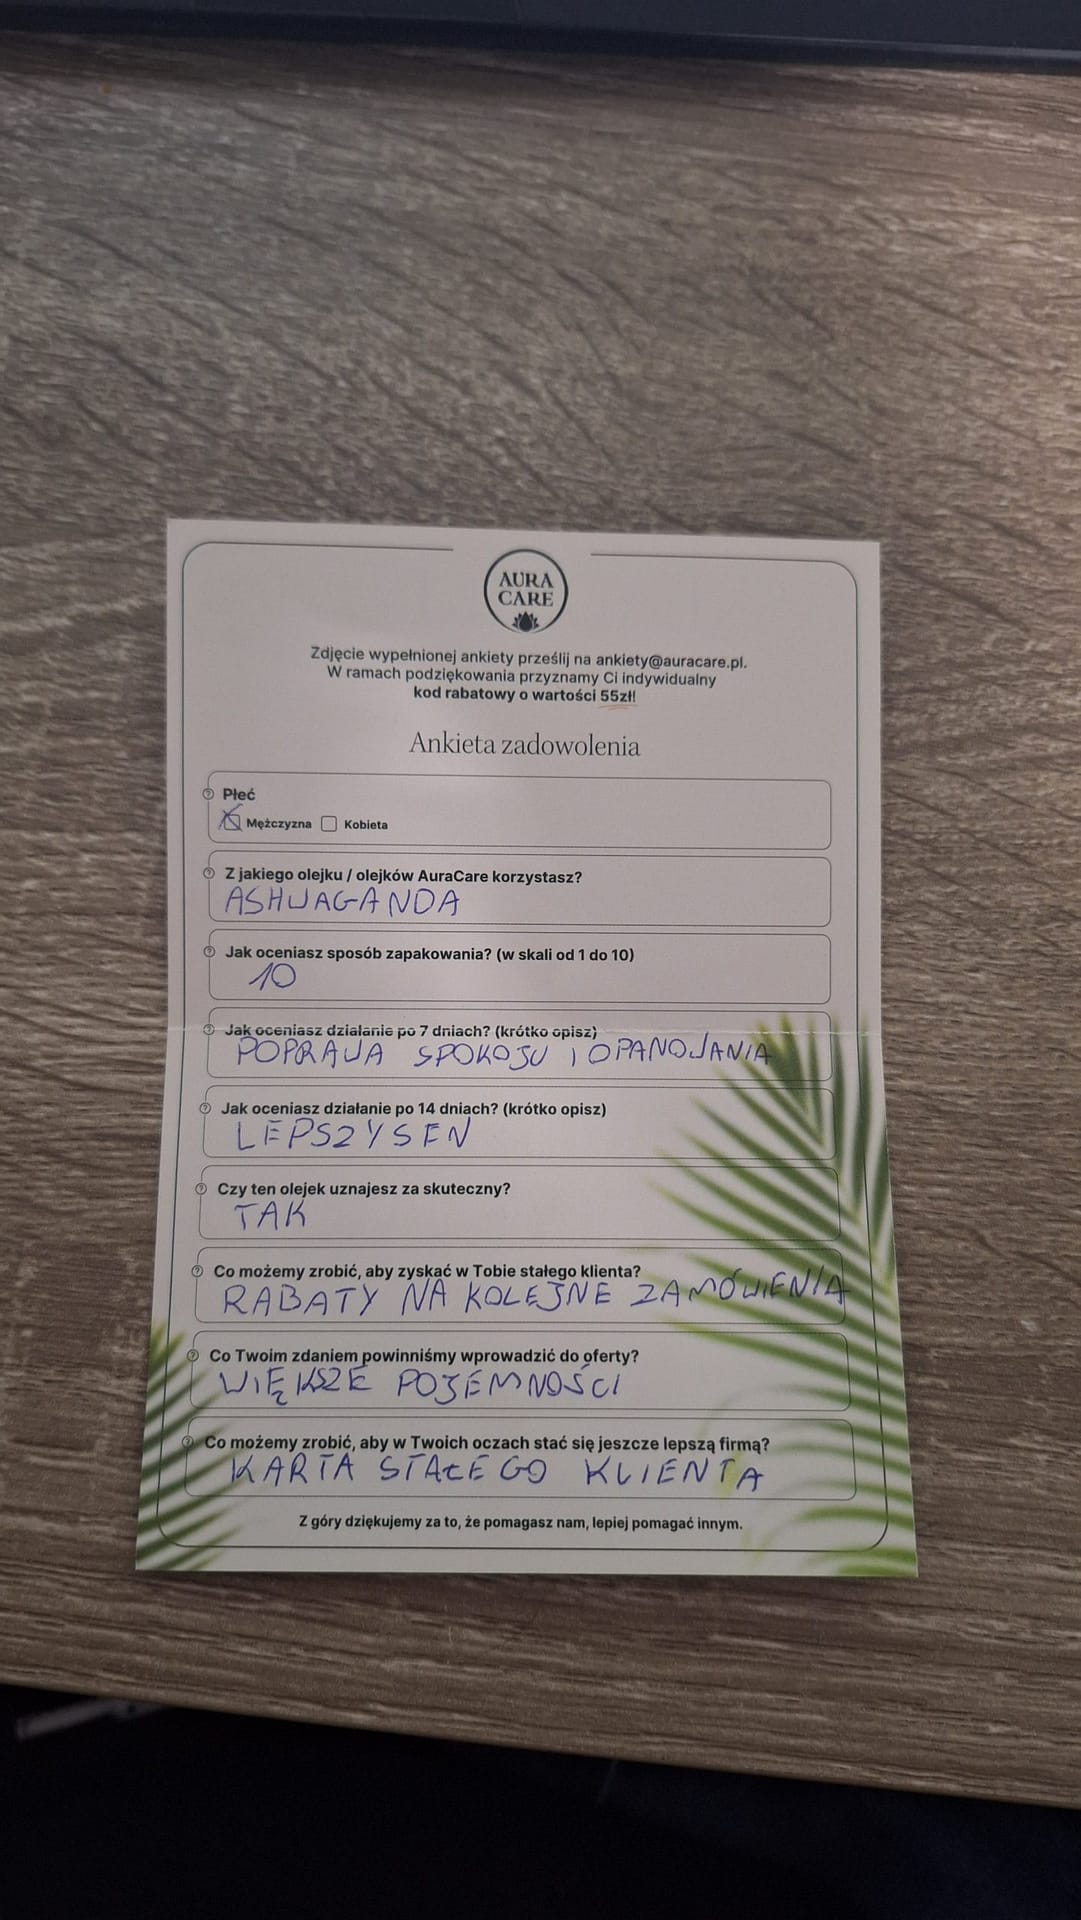 AURA
CARE
Zdjęcie wypełnionej ankiety prześlij na ankiety@auracare.pl.
W ramach podziękowania przyznamy Ci indywidualny
kod rabatowy o wartości 55zł!
Ankieta zadowolenia
Płeć
Mężczyzna Kobieta
Z jakiego olejku / olejków AuraCare korzystasz?
ASHWAGANDA
Jak oceniasz sposób zapakowania? (w skali od 1 do 10)
10
Jak oceniasz działanie po 7 dniach? (krótko opisz)
POPRAWA SPOKOJU I OPANOWANIA
Jak oceniasz działanie po 14 dniach? (krótko opisz)
LEPSZY SEN
Czy ten olejek uznajesz za skuteczny?
TAK
Co możemy zrobić, aby zyskać w Tobie stałego klienta?
RABATY NA KOLEJNE ZAMÓWIENIA
Co Twoim zdaniem powinniśmy wprowadzić do oferty?
WIĘKSZE POJEMNOŚCI
Co możemy zrobić, aby w Twoich oczach stać się jeszcze lepszą firmą?
KARTA STAŁEGO KLIENTA
Z góry dziękujemy za to, że pomagasz nam, lepiej pomagać innym.